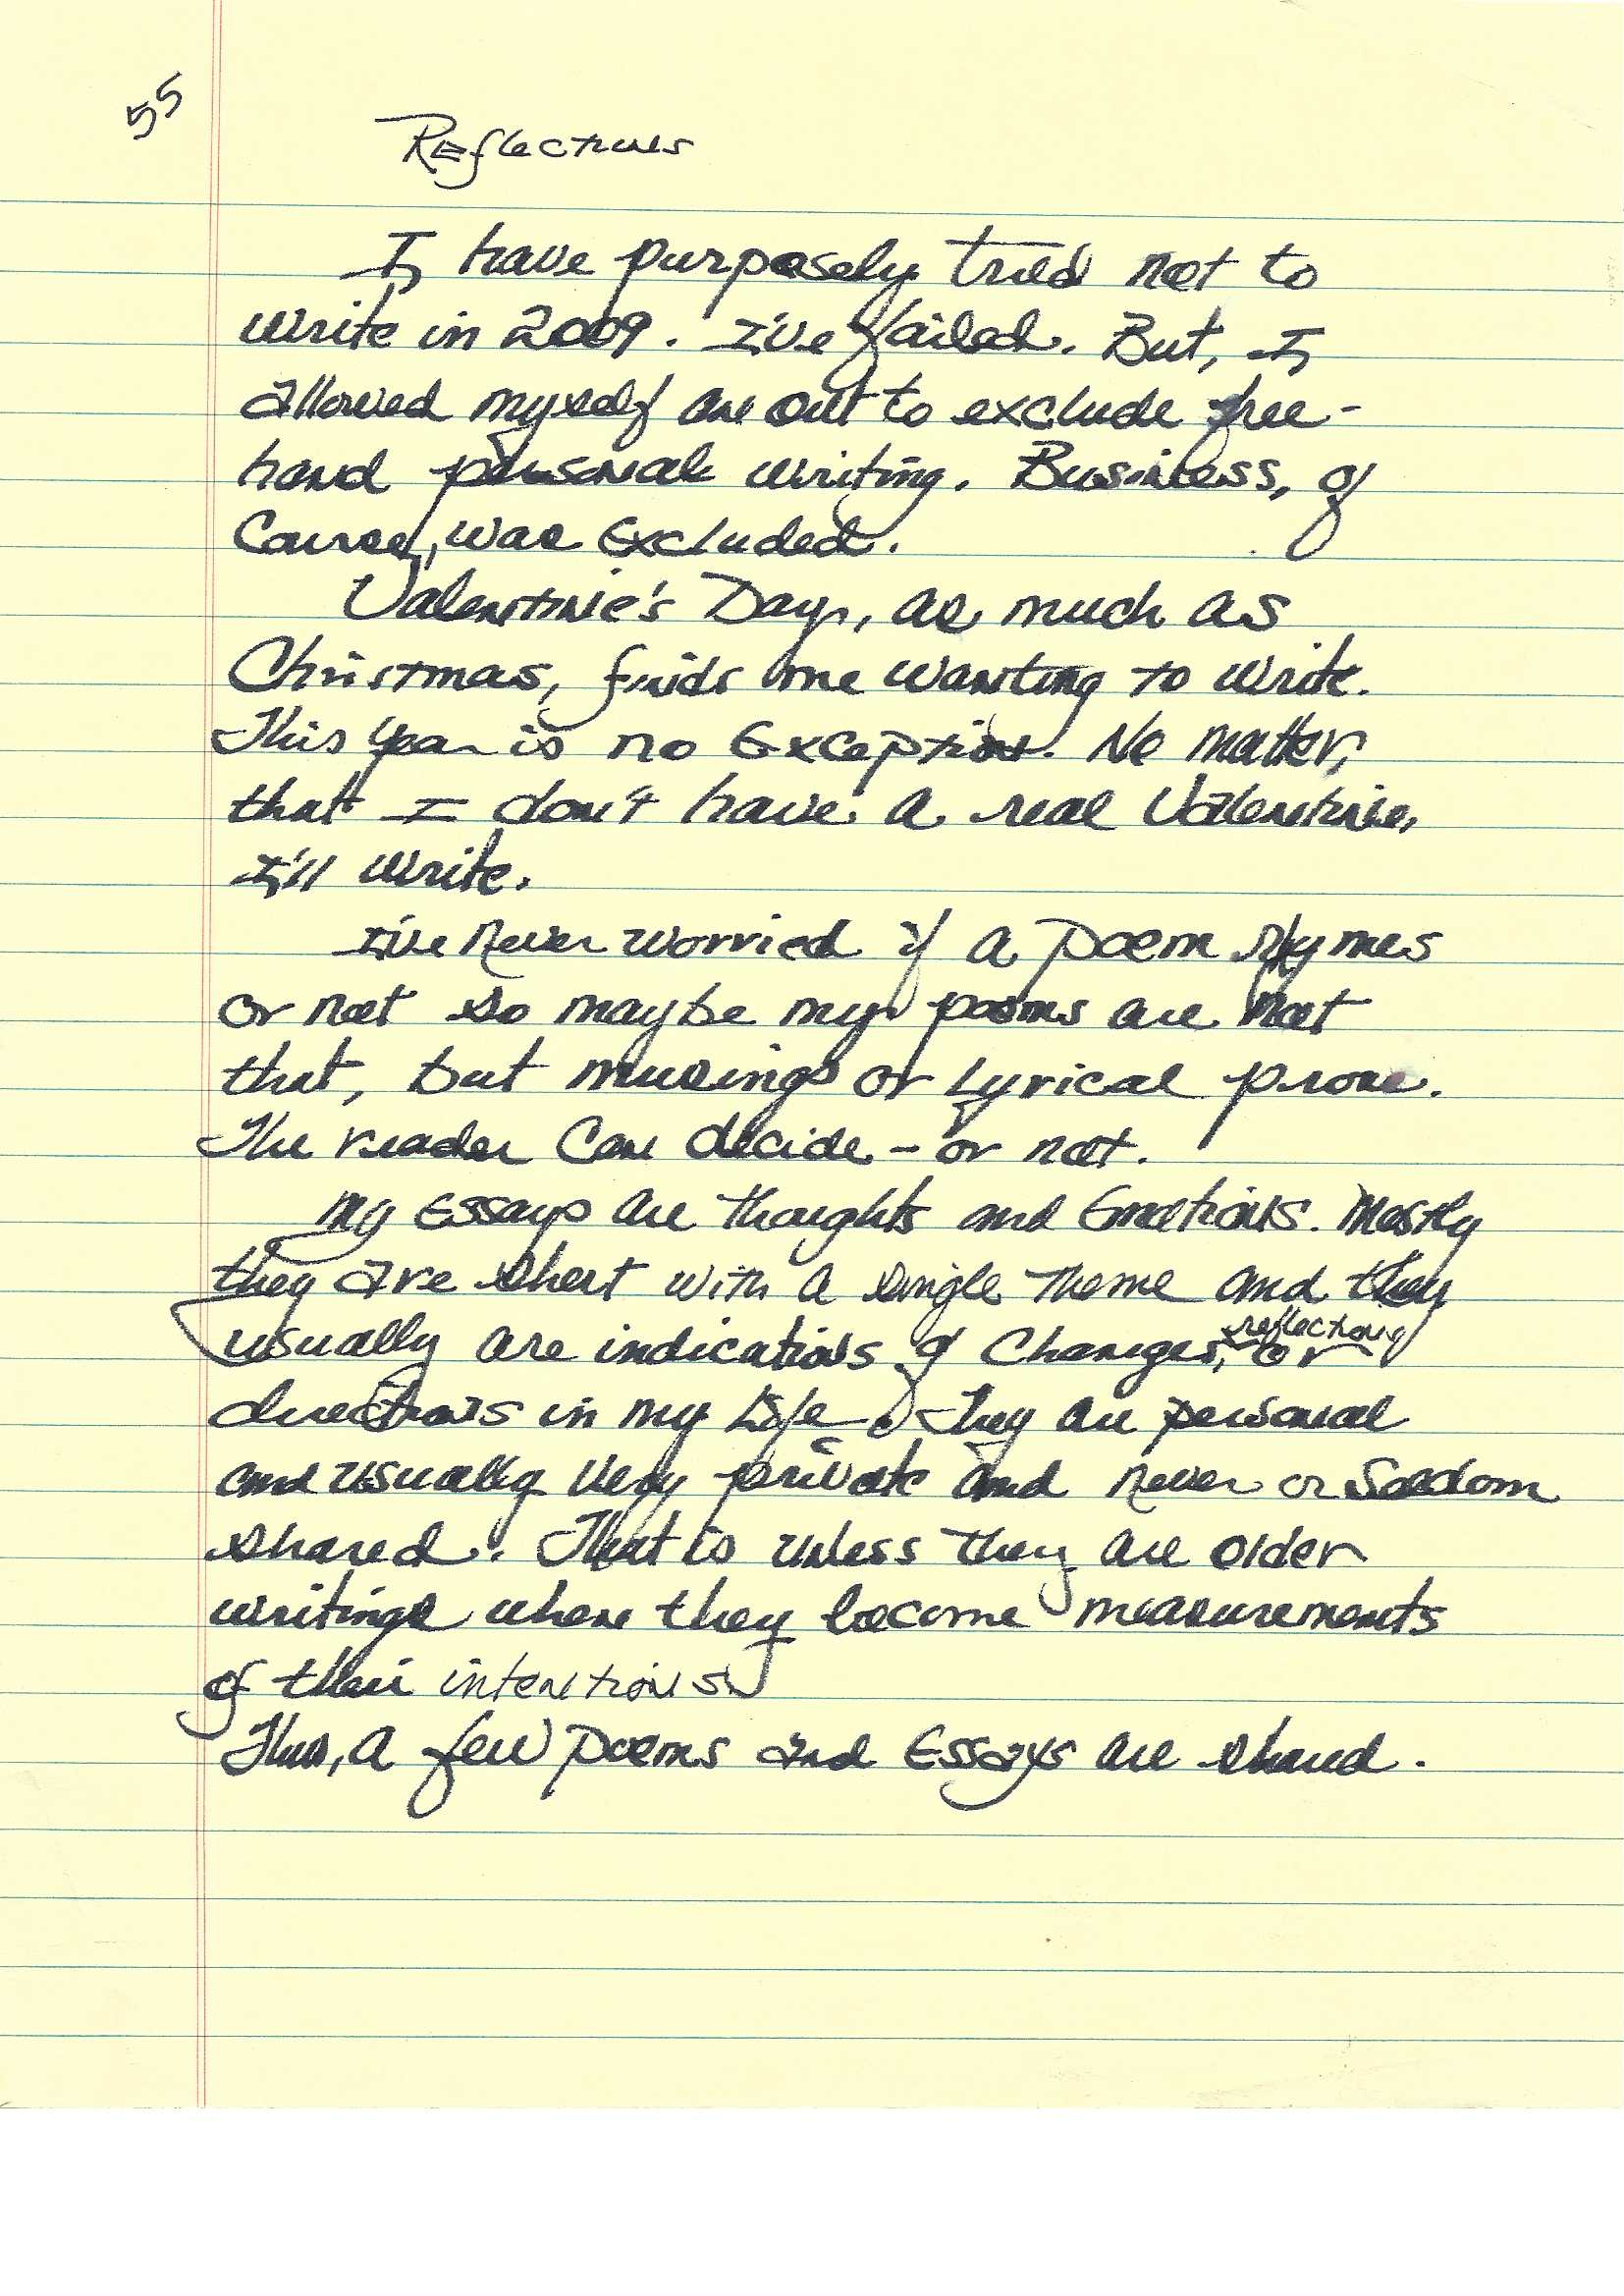 55
Reflections
I have purposely tried not to
write in 2009. I've failed. But, I
allowed myself an out to exclude free-
hand personal writing. Business, of
Course, was Excluded.
Valentine's Day, as much as
Christmas, finds me wanting to write.
This year is no Exception. No matter,
that I don't have a real Valentine,
I'll write.
I've never worried if a poem rhymes
or not so maybe my poems are not
that, but musings or Lyrical prose.
The reader Can decide - or not.
My Essays are thoughts and Emotions. Mostly
they are short with a single theme and they
usually are indications of Changes, reflections or
directions in my Life. They are personal
and usually very private and never or Seldom
shared. That is unless they are older
writings where they become measurements
of their intentions.
Thus, a few poems and Essays are shared.